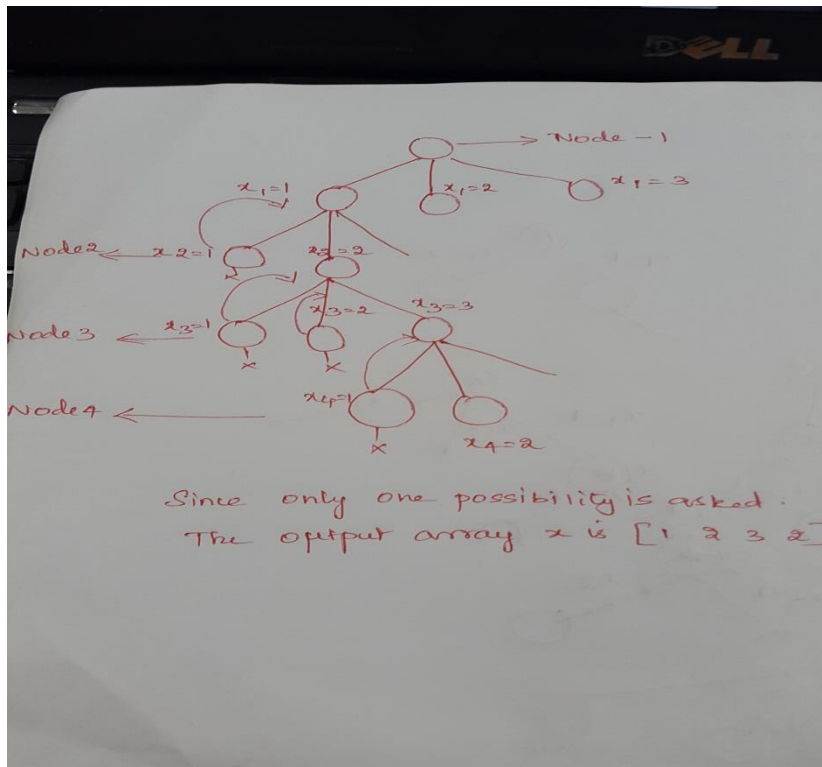 DELL
Node-1
x₁=1
x₁=2
x₁=3
Node2
x2=1
x2=2
Node3
x3=1
x3=2
x3=3
Node4
x4=1
x4=2
Since only one possibility is asked.
The output array x is [1 2 3 2]